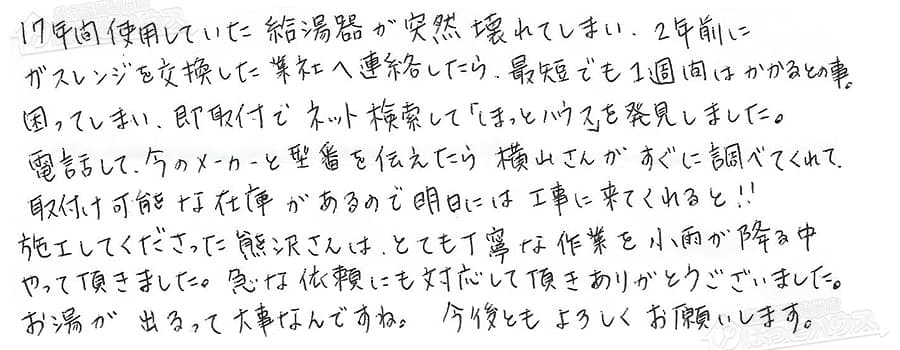 17年間使用していた給湯器が突然壊れてしまい、2年前に
ガスレンジを交換した業社へ連絡したら、最短でも1週間はかかるとの事。
困ってしまい、即取付でネット検索して「ほっとハウス」を発見しました。
電話して、今のメーカーと型番を伝えたら横山さんがすぐに調べてくれて、
取付け可能な在庫があるので明日には工事に来てくれると!!
施工してくださった熊沢さんは、とても丁寧な作業を小雨が降る中
やって頂きました。急な依頼にも対応して頂きありがとうございました。
お湯が出るって大事なんですね。今後ともよろしくお願いします。